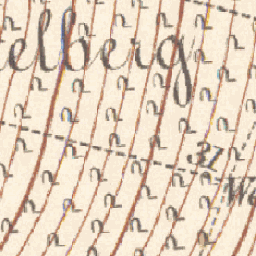 elberg
31
We